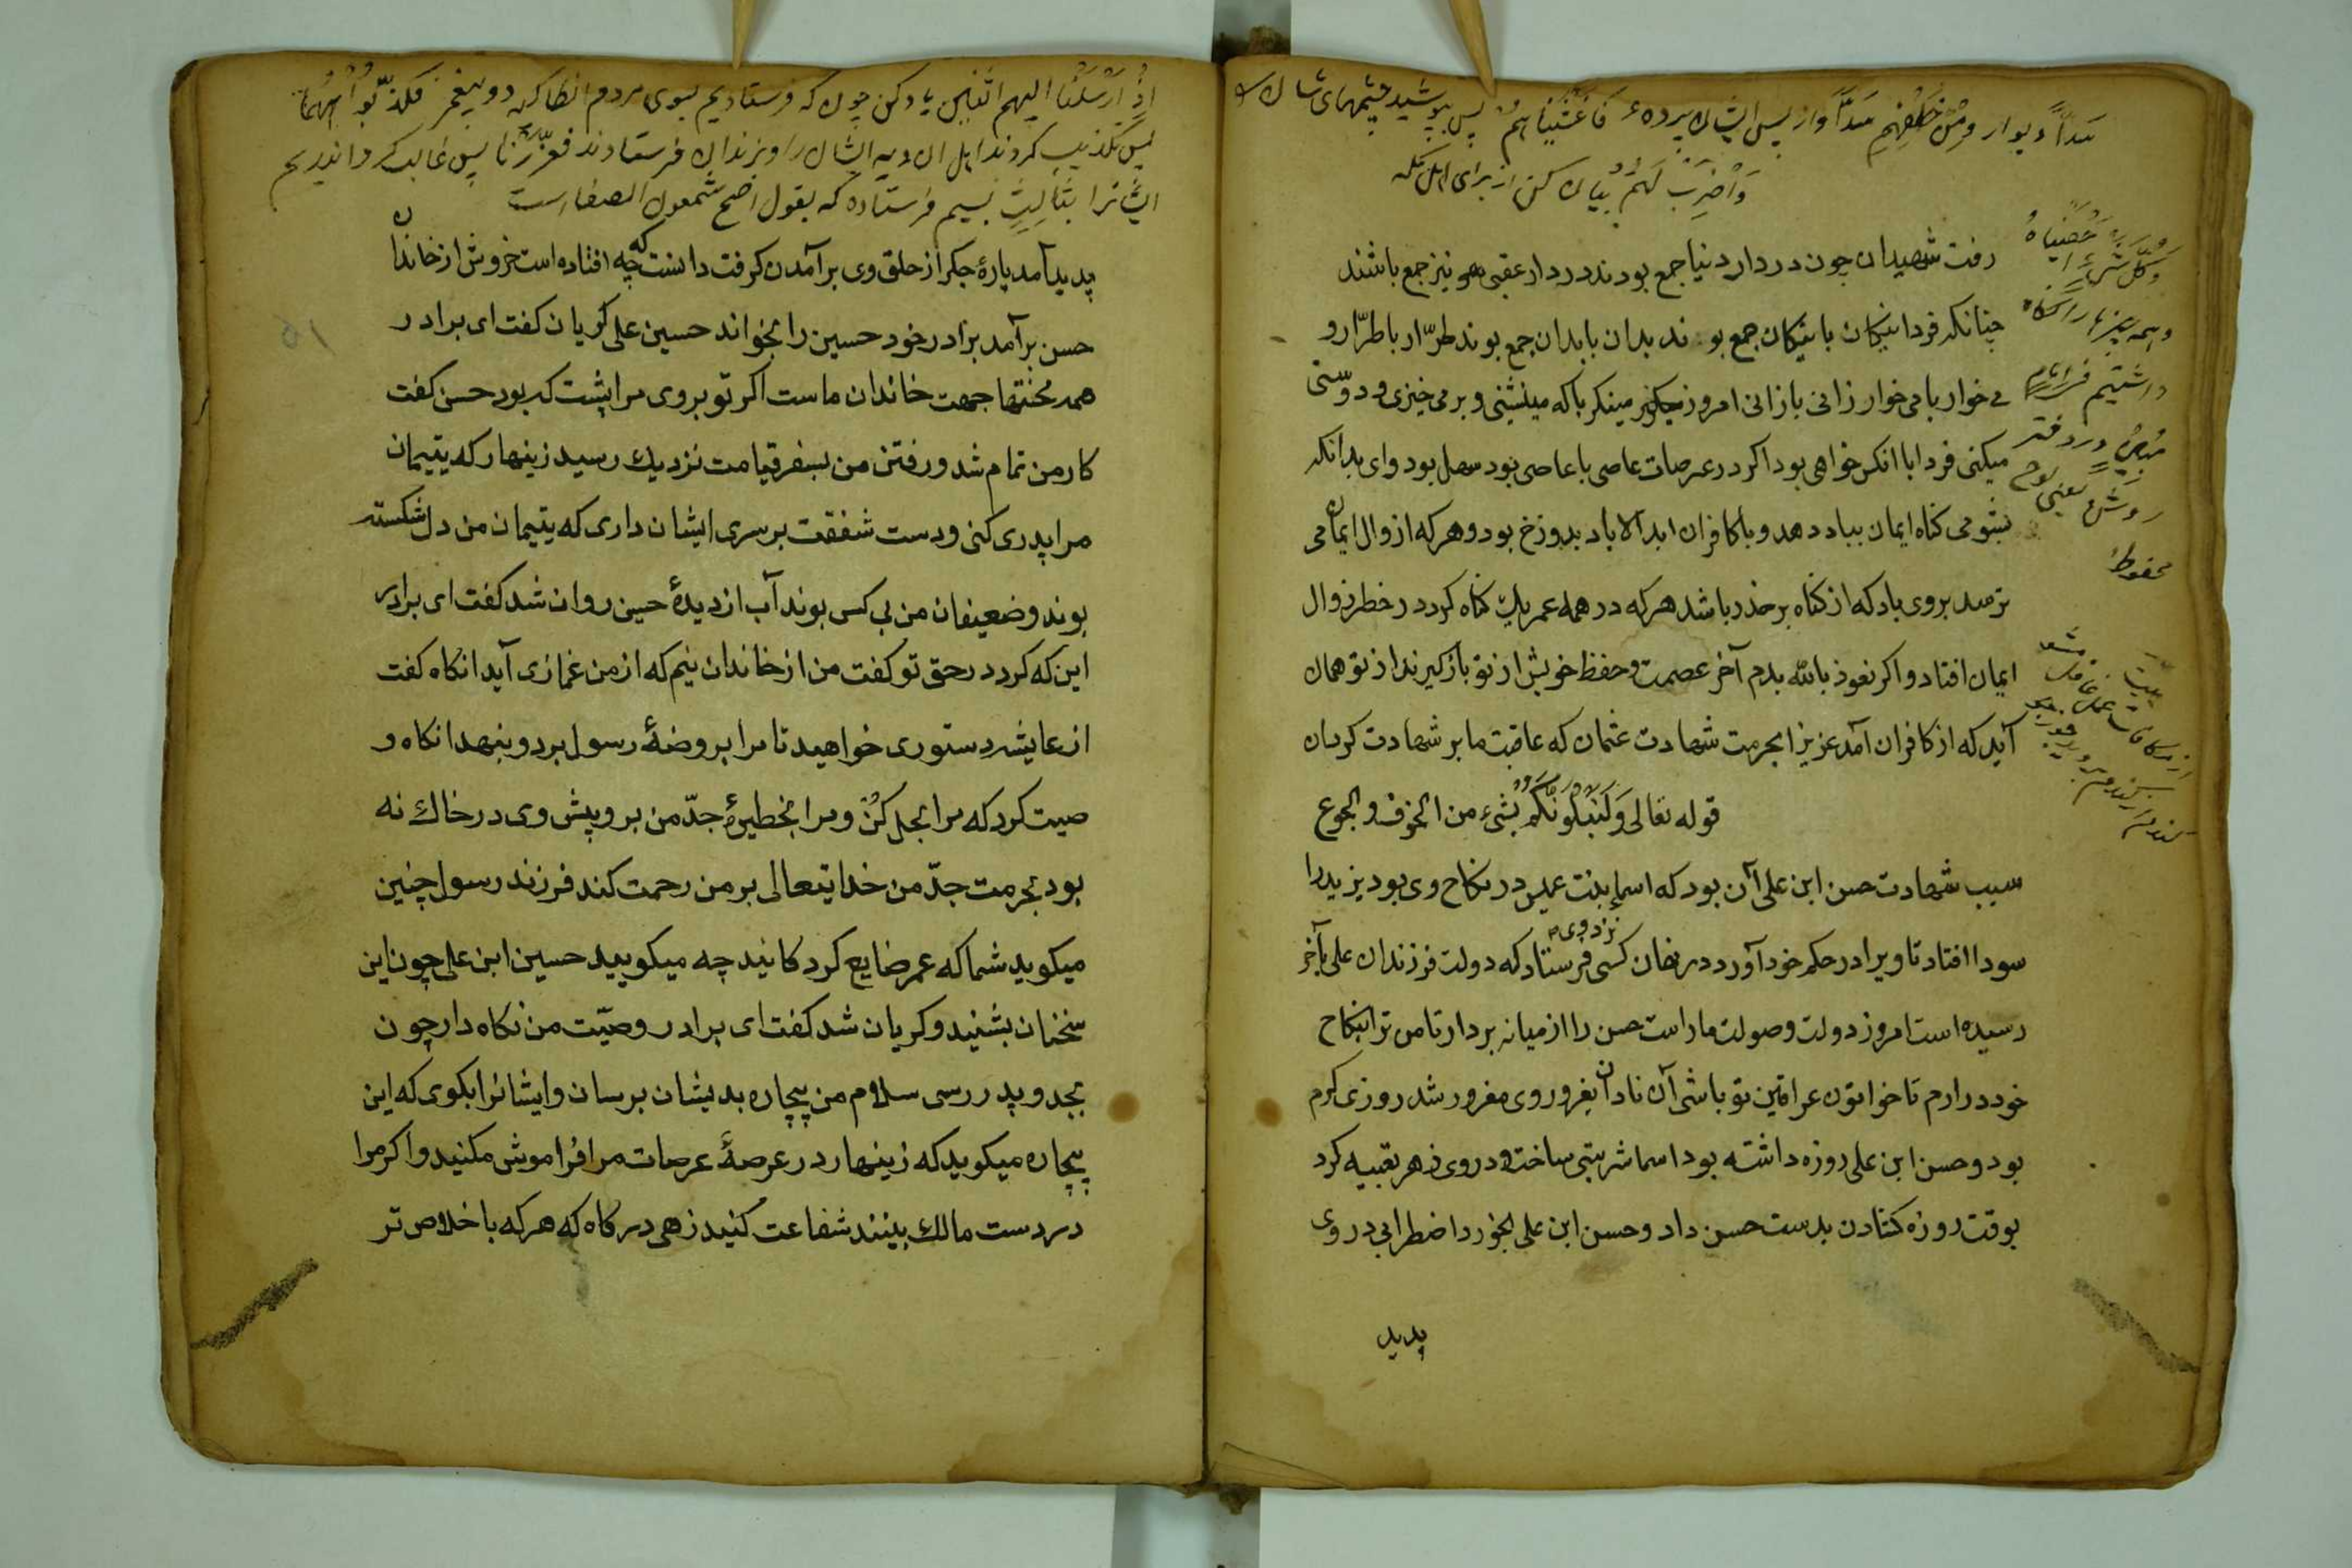 سَدّاً دیوار ومِنْ خَلْفِهِم سَدّاً واز پس ایشان پرده فَاَغْشَیْناهُمْ پس بپوشید چشمهای شان
وَاضْرِبْ لَهُمْ بیان کن از برای اهل مکه
وَکُلَّ شَیْءٍ اَحْصَیْناهُ
وهمه چیزها را نگاه
داشتیم فی امام
مُبِینٍ در دفتر
روشن یعنی لوح
محفوظ
رفت شهیدان چون در دار دنیا جمع بودند در دار عقبی نیز جمع باشند
چنانکه فردا نیکان با نیکان جمع بوند بدان با بدان جمع بوند طرّار با طرّار و
می خوار با می خوار زانی با زانی امروز مینکر با که مینشینی و بر می خیزی و دوستی
میکنی فردا با انکس خواهی بود اکر در عرصات عاصی با عاصی بود سهل بود وای بدانکه
بشومی کناه ایمان بباد دهد و با کافران ابد الاباد بدوزخ بود و هر که از زوال ایمان می
ترسد بر وی باد که از کناه بر حذر باشد هر که در همه عمر یک کناه کرد در خطر زوال
ایمان افتاد و اکر نعوذ بالله بدم آخر عصمت و حفظ خویش از تو باز کیرند از تو همان
آید که از کافران آمد عزیزا بحرمت شهادت عثمان که عاقبت ما بر شهادت کردان
بیت
از مکافات عمل غافل مشو
کندم از کندم بروید جو ز جو
قوله تعالی وَلَنَبْلُوَنَّکُمْ بِشَیْءٍ من الخوف والجوع
سبب شهادت حسن ابن علی آن بود که اسما بنت عمیس در نکاح وی بود یزید را
سودا افتاد تا ویرا در حکم خود آورد در نهان کسی نزد وی فرستاد که دولت فرزندان علی بآخر
رسیده است امروز دولت و صولت ماراست حسن را از میانه بردار تا من ترا بنکاح
خود درارم تا خواتون عراقین تو باشی آن نادان بغرور وی مغرور شد روزی کرم
بود و حسن ابن علی روزه داشته بود اسما شربتی ساخت و در وی زهر تعبیه کرد
بوقت روزه کشادن بدست حسن داد و حسن ابن علی بخورد اضطرابی در وی
پدید
اِذْ اَرْسَلْنا الیهم اثْنَیْنِ یاد کن چون که فرستادیم بسوی مردم انطاکیه دو پیغمبر فَکَذَّبُوهُمَا
پس تکذیب کردند اهل ان دیه ایشان را و بزندان فرستادند فَعَزَّزْنا پس غالب کردانیدیم
ایشانرا بِثالِثٍ بسیم فرستاده که بقول اصح شمعون الصفا است
پدید آمد پارهٔ جکر از حلق وی برآمدن کرفت دانست که چه افتاده است خروش از خاندان
حسن برآمد برادر خود حسین را بخواند حسین علی کریان کفت ای برادر
همه محنتها جهت خاندان ماست اکر تو بروی مرا پشت که بود حسن کفت
کار من تمام شد و رفتن من بسفر قیامت نزدیک رسید زینهار که یتیمان
مرا پدری کنی و دست شفقت بر سری ایشان داری که یتیمان من دل شکسته
بوند و ضعیفان من بی کس بوند آب از دیدهٔ حسین روان شد کفت ای برادر
این که کرد در حق تو کفت من از خاندان نیم که از من غمازی آید انکاه کفت
از عایشه دستوری خواهید تا مرا بروضهٔ رسول برد و بنهد انکاه و
صیت کرد که مرا بجل کُنْ و مرا بخطیرهٔ جدّ من بر و پیش وی در خاک نه
بود بحرمت جدّ من خدایتعالی بر من رحمت کند فرزند رسول چنین
میکوید شما که عمر ضایع کرد کانید چه میکویید حسین ابن علی چون این
سخنان بشنید و کریان شد کفت ای برادر وصیّت من نکاه دار چون
بجد و پدر رسی سلام من بیچاره بدیشان برسان و ایشانرا بکوی که این
بیچاره میکوید که زینهار در عرصهٔ عرصات مرا فراموش مکنید و اکر مرا
در دست مالک بینند شفاعت کنید زهی درکاه که هر که با خلاص تر